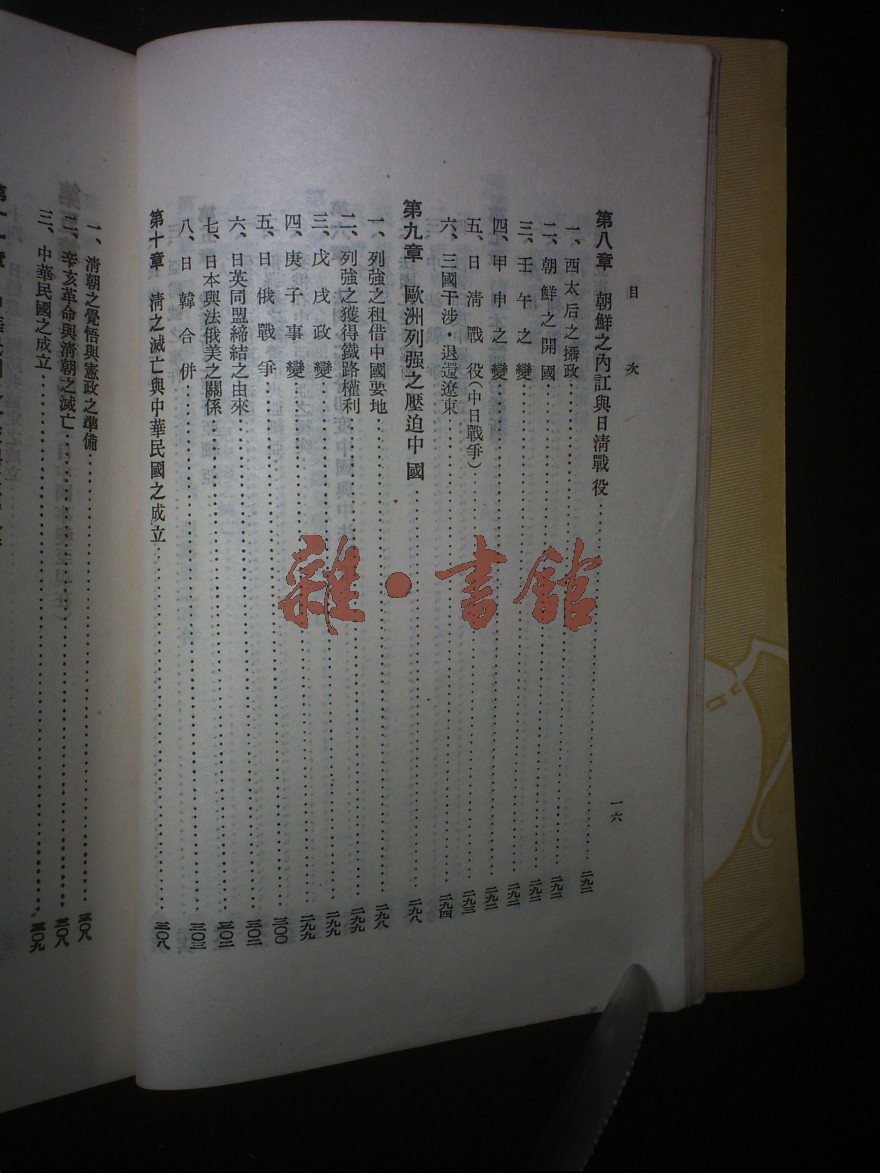 目次
第八章 朝鮮之內訌與日清戰役……二九二
一、西太后之攝政……二九二
二、朝鮮之開國……二九二
三、壬午之變……二九二
四、甲申之變……二九二
五、日清戰役(中日戰爭)……二九三
六、三國干涉・退還遼東……二九四
第九章 歐洲列强之壓迫中國……二九八
一、列強之租借中國要地……二九八
二、列強之獲得鐵路權利……二九九
三、戊戌政變……二九九
四、庚子事變……二九九
五、日俄戰爭……三〇〇
六、日英同盟締結之由來……三〇二
七、日本與法俄美之關係……三〇二
八、日韓合併……三〇三
第十章 清之滅亡與中華民國之成立……三〇八
一六
一、清朝之覺悟與憲政之準備……三〇八
二、辛亥革命與清朝之滅亡……三〇八
三、中華民國之成立……三〇九
雜・書館